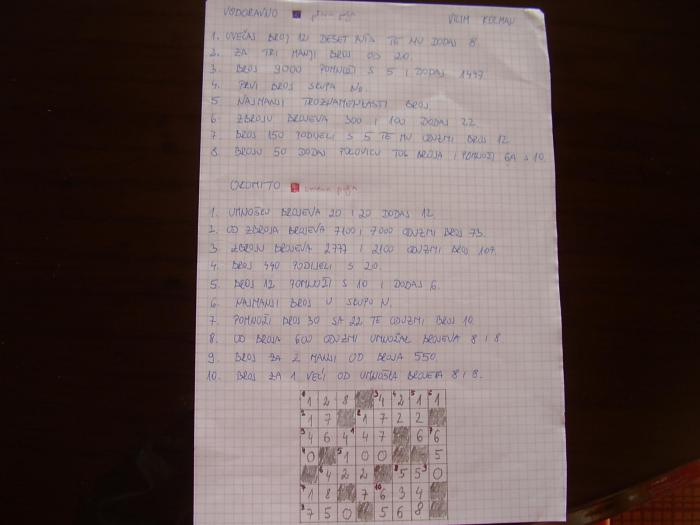 VODORAVNO plava boja VILIM KOLMAN
1. UVEĆAJ BROJ 12 DESET PUTA TE MU DODAJ 8.
2. ZA TRI MANJI BROJ OD 20.
3. BROJ 9000 POMNOŽI S 5 I DODAJ 1447.
4. PRVI BROJ SKUPA No.
5 NAJMANJI TROZNAMENKASTI BROJ.
6 ZBROJU BROJEVA 300 I 100 DODAJ 22.
7. BROJ 150 PODIJELI S 5 TE MU ODUZMI BROJ 12
8 BROJU 50 DODAJ POLOVICU TOG BROJA I POMNOŽI GA S 10
OKOMITO crvena boja
1. UMNOŠKU BROJEVA 20 I 20 DODAJ 12.
2. OD ZBROJA BROJEVA 7100 I 7000 ODUZMI BROJ 73.
3 ZBROJU BROJEVA 2777 I 2100 ODUZMI BROJ 107.
4. BROJ 440 PODIJELI S 20.
5. BROJ 12 POMNOŽI S 10 I DODAJ 6.
6. NAJMANJI BROJ U SKUPU N.
7. POMNOŽI BROJ 30 SA 22 TE ODUZMI BROJ 10.
8. OD BROJA 600 ODUZMI UMNOŽAK BROJEVA 8 I 8
9. BROJ ZA 2 MANJI OD BROJA 550.
10. BROJ ZA 1 VEĆI OD UMNOŠKA BROJEVA 8 I 8.
1 2 8 4 2 1 1
1 7 1 7 2 2
4 6 4 4 7 6 6
0 1 0 0 5
4 2 2 5 5 0
1 8 7 6 3 4
7 5 0 5 6 8